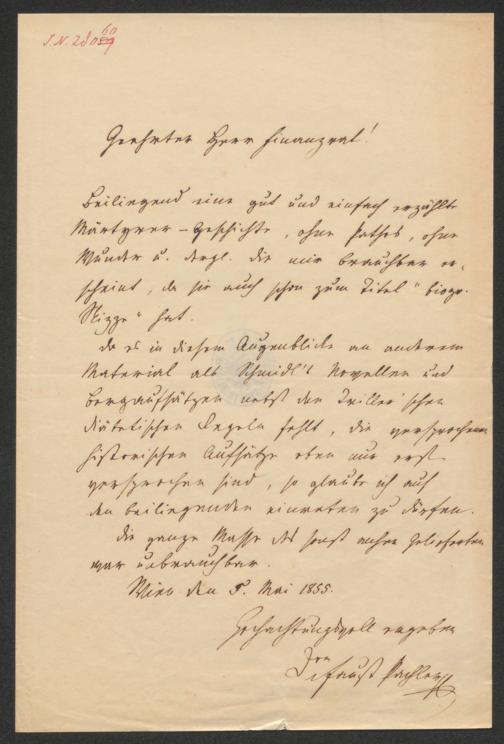 I.N. 280
Geehrter Herr Finanzrat!
Beiliegend eine gut und einfach erzählte
Märtyrer-Geschichte, ohne Pathos, ohne
Wunder u. dergl. die mir brauchbar er-
scheint, da sie auch schon zum Titel "biogr.
Skizze" hat.
Da es in diesem Augenblicke an anderem
Material als Schmidl's Novellen und
Bergaufsätzen nebst den Triller'schen
diätetischen Regeln fehlt, die versprochenen
historischen Aufsätze eben nur erst
versprochen sind, so glaube ich auf
den beiliegenden einraten zu dürfen.
Die ganze Masse des sonst Gelieferten
war unbrauchbar.
Wien den 5. Mai 1855.
Hochachtungsvoll ergeben
Faust Pachler